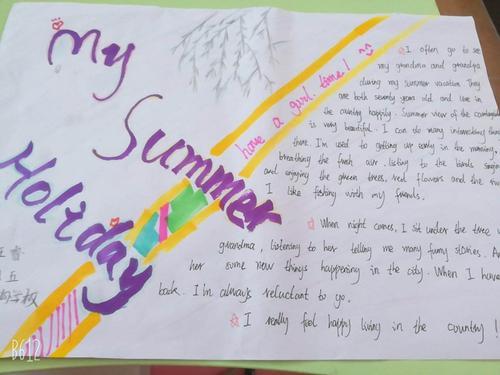 My
Summer
Holiday
have a good time!
I often go to see
my grandma and grandpa
during my summer vacation. They
are both seventy years old and live in
the country happily. Summer view of the countryside
is very beautiful. I can do many interesting things
there. I'm used to getting up early in the morning,
breathing the fresh air. listing to the birds
and enjoying the green trees, red flowers and the
I like fishing with my friends.
When night comes, I sit under the tree
grandma, listening to her telling me many funny stories. And
her some new things happening in the city. When I have
back. I'm always reluctant to go.
I really feel happy living in the country!
学校
B612